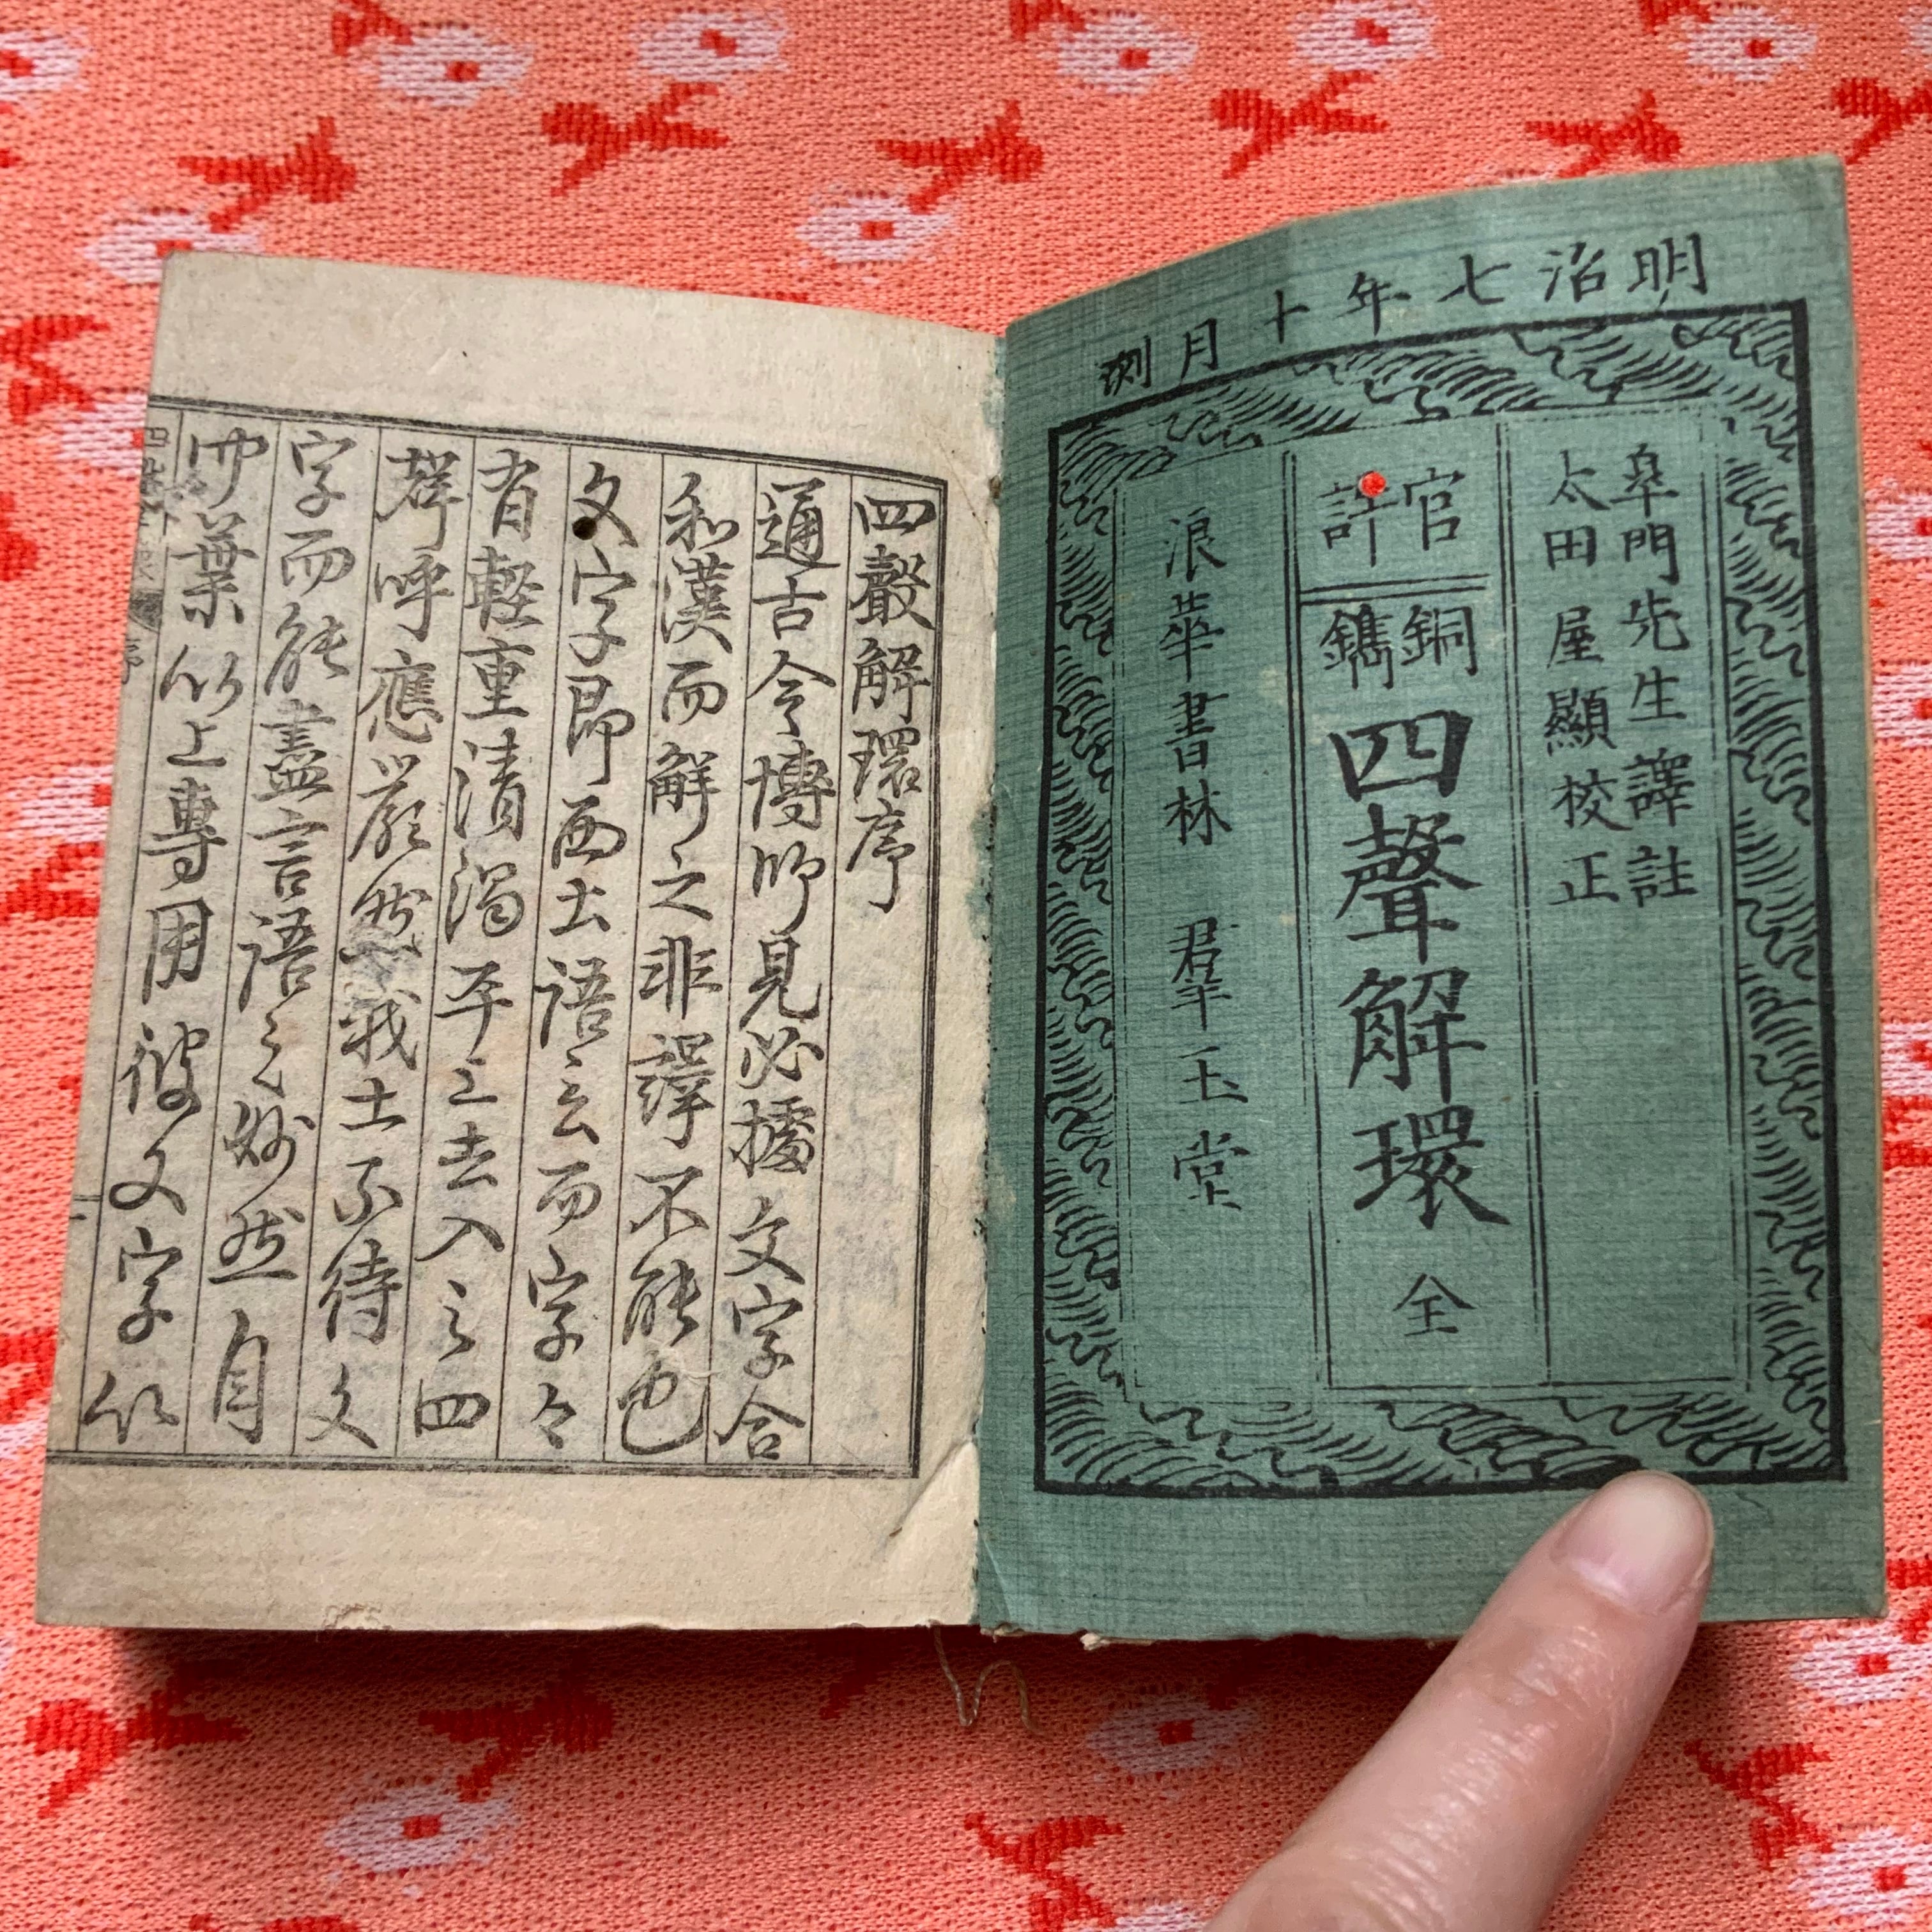 明治七年十月刻
皐門先生譯註
太田屋顯校正
官許
銅鐫
四聲解環 全
浪華書林 羣玉堂
四聲解環序
通古今博所見必據文字合
和漢而解之非譯不能也
文字即西土語言而字々
有軽重清濁平上去入之四
聲呼應嚴然我土不待文
字而能盡言語之妙然自
中葉以上專用彼文字以